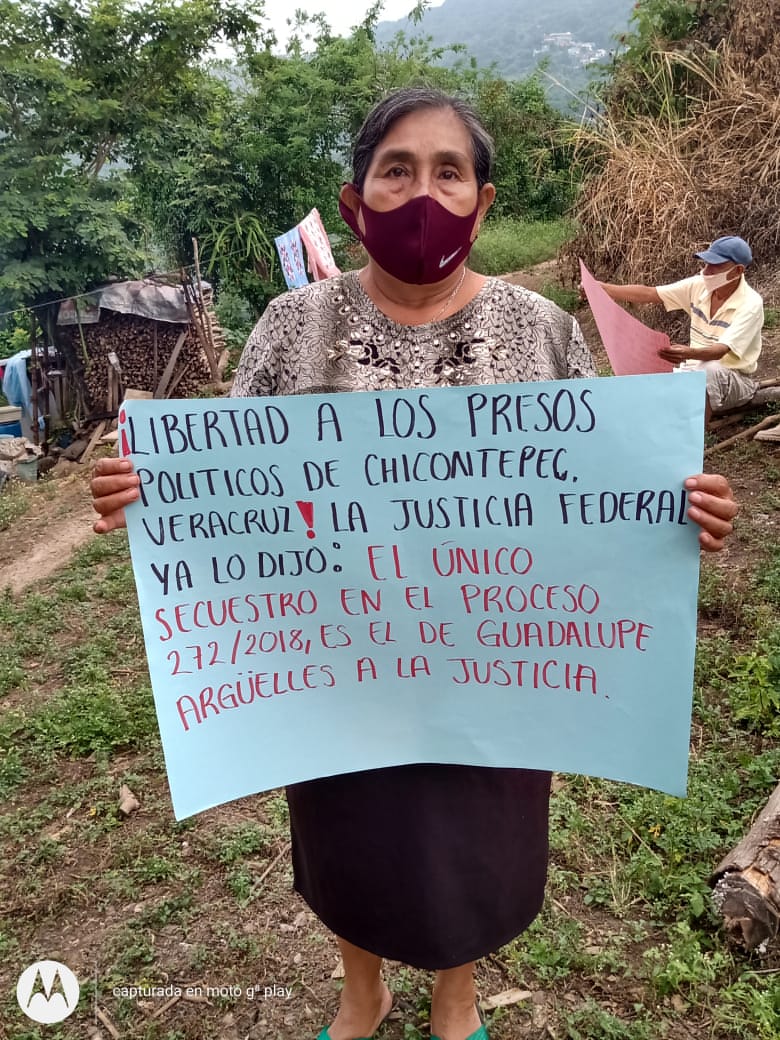 ¡LIBERTAD A LOS PRESOS
POLITICOS DE CHICONTEPEC,
VERACRUZ! LA JUSTICIA FEDERAL
YA LO DIJO: EL ÚNICO
SECUESTRO EN EL PROCESO
272/2018, ES EL DE GUADALUPE
ARGÜELLES A LA JUSTICIA.
capturada en moto g⁸ play